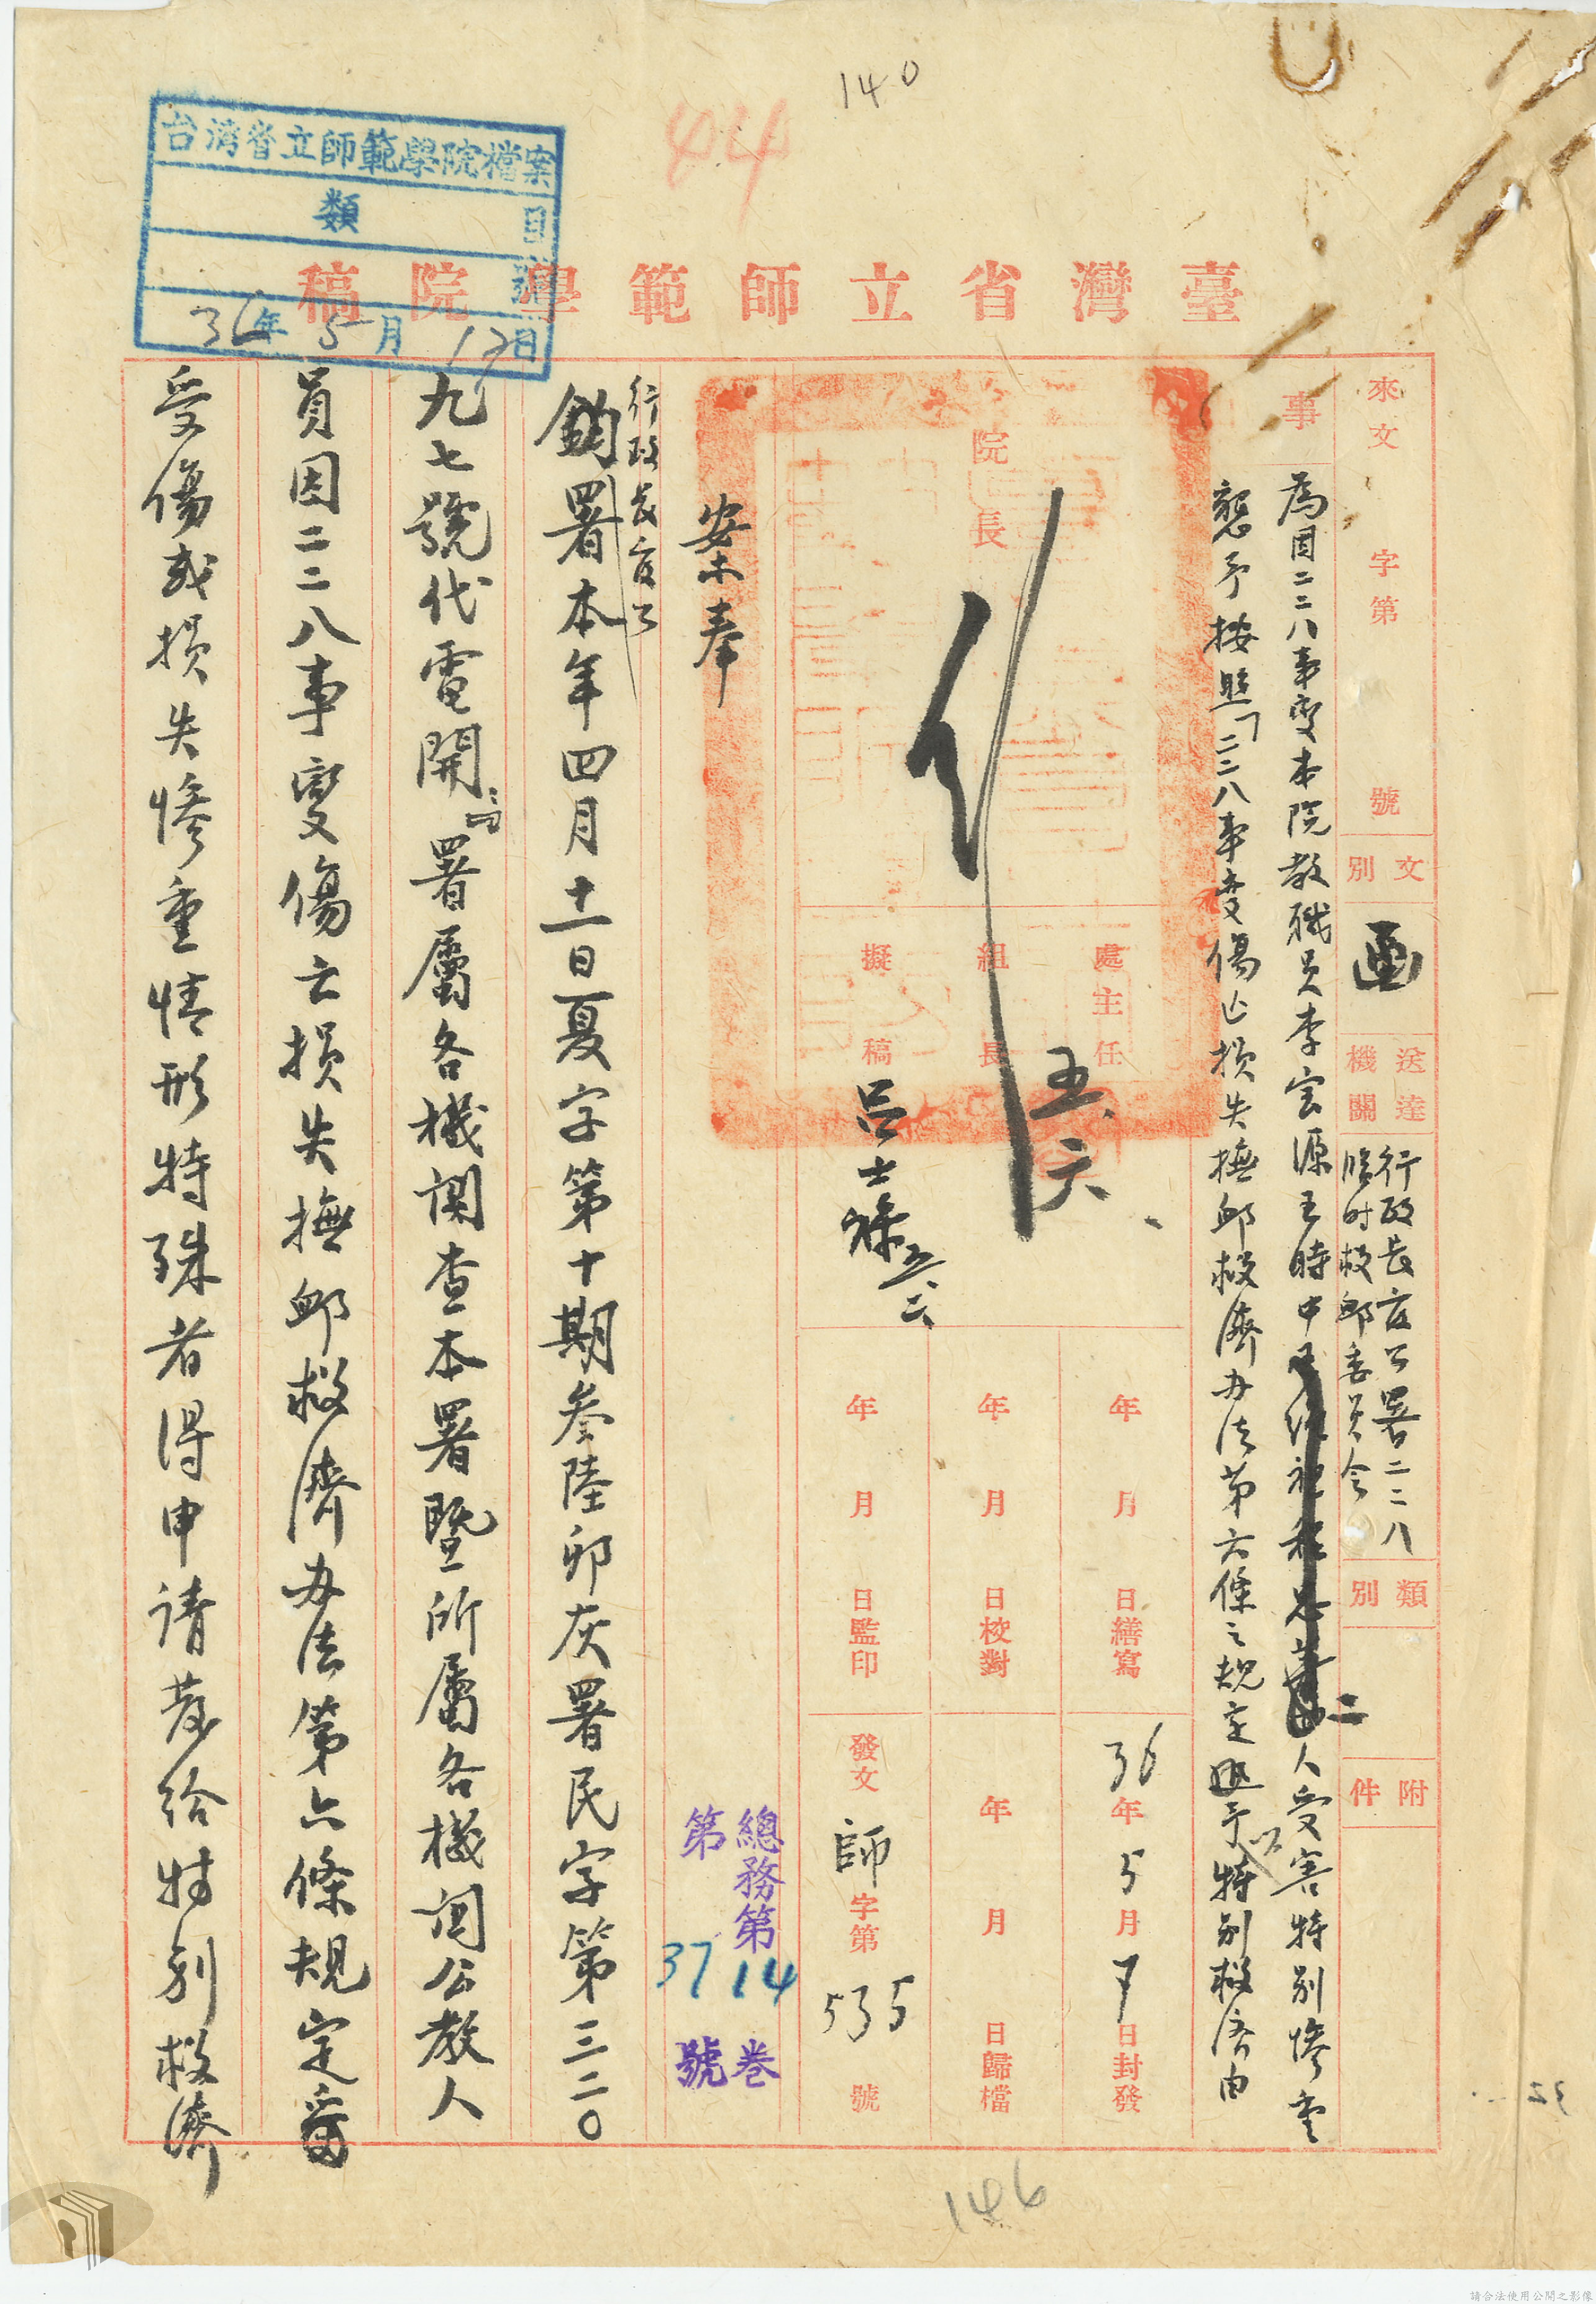 140
44
台湾省立師範學院檔案
類
目
號
36年5月12日
臺灣省立師範學院稿
來文 字第 號
文別 函
送達機關 行政長官公署二二八
臨时救卹委員会
類別
附件
事
為因二二八事变本院教職員李 源 時中 二人受害特別慘重
懇予按照「二二八事变傷亡損失撫卹救濟办法第六條之規定 予以特別救济由
院長
處主任
組長
擬稿 呂士
五、六、
年 月 日繕寫
年 月 日校對
年 月 日監印
36年5月7日封發
年 月 日歸檔
發文 師字第535號
總務第14卷
第37號
案奉
行政長官公
鈞署本年四月十一日夏字第十期叁陸卯灰署民字第三二〇
九七號代電開：「署屬各機関查本署暨所屬各機関公教人
員因二二八事变傷亡損失撫卹救濟办法第六條規定
受傷或損失慘重情形特殊者得申请發給特别救濟
146
請合法使用公開之影像